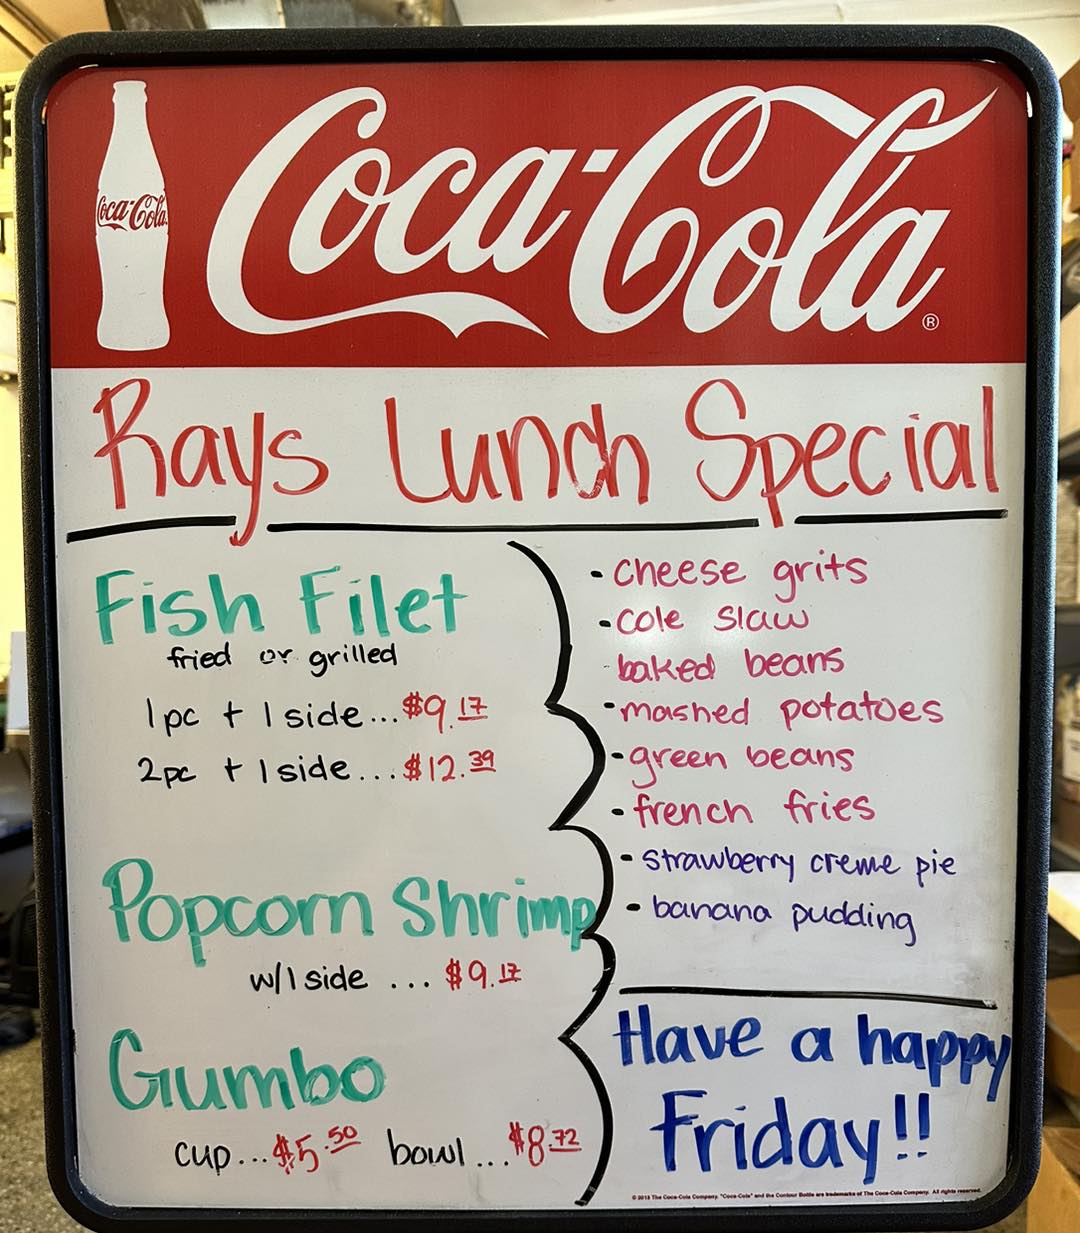 Coca-Cola
Coca-Cola®
Rays Lunch Special
Fish Filet
fried or grilled
1pc + 1 side...$9.17
2pc + 1 side...$12.39
Popcorn Shrimp
w/1 side ... $9.17
Gumbo
cup...$5.50 bowl...$8.72
• cheese grits
• cole slaw
baked beans
• mashed potatoes
• green beans
• french fries
• strawberry creme pie
• banana pudding
Have a happy
Friday!!
© 2013 The Coca-Cola Company. "Coca-Cola" and the Contour Bottle are trademarks of The Coca-Cola Company. All rights reserved.